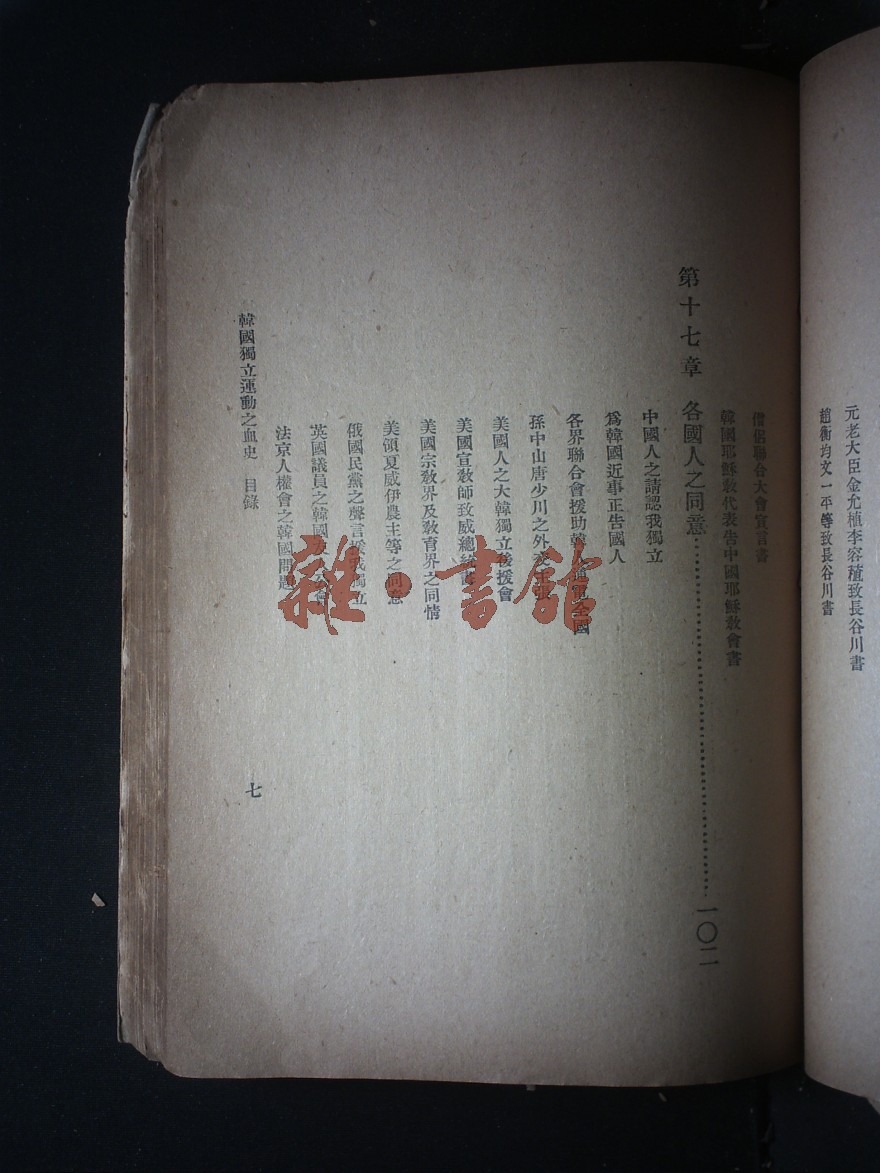 元老大臣金允植李容稙致長谷川書
趙衡均文一平等致長谷川書
僧侶聯合大會宣言書
韓國耶穌敎代表告中國耶穌敎會書
第十七章 各國人之同意 一〇二
中國人之請認我獨立
爲韓國近事正告國人
各界聯合會援助韓人通電全國
孫中山唐少川之外交主張
美國人之大韓獨立後援會
美國宣敎師致威總統書
美國宗敎界及敎育界之同情
美領夏威伊農主等之同意
俄國民黨之聲言援我獨立
英國議員之韓國
法京人權會之韓國問題
韓國獨立運動之血史 目錄
七
雜·書館